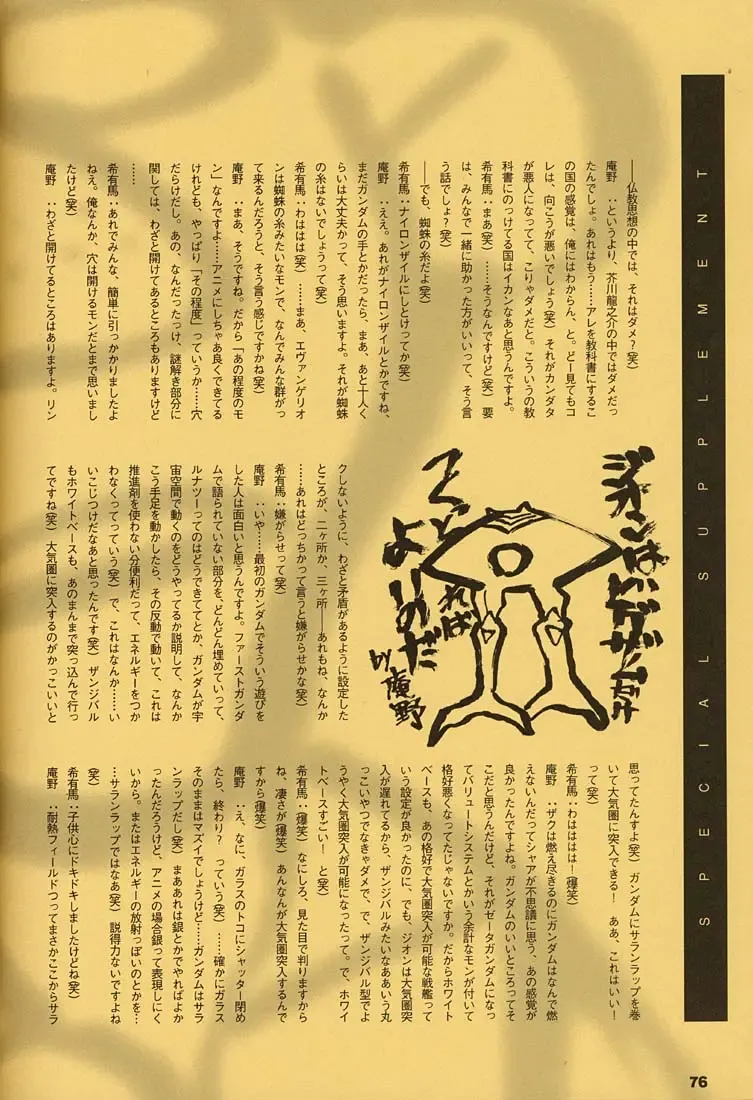 SPECIAL SUPPLEMENT
――仏教思想の中では、それはダメ？(笑)
庵野　：というより、芥川龍之介の中ではダメだっ
たんでしょ。あれはもう……アレを教科書にするこ
の国の感覚は、俺にはわからん、と。どー見てもコ
レは、向こうが悪いでしょう(笑) それがカンダタ
が悪人になってて、こりゃダメだと。こういうの教
科書にのっけてる国はイカンなあと思うんですよ。
希有馬：まあ(笑)……そうなんですけど(笑) 要
は、みんなで一緒に助かった方がいいって、そう言
う話でしょ？(笑)
――でも、蜘蛛の糸だよ(笑)
希有馬：ナイロンザイルにしとけってか(笑)
庵野　：ええ。あれがナイロンザイルとかですね、
まだガンダムの手とかだったら、まあ、あと十人く
らいは大丈夫かって、そう思いますよ。それが蜘蛛
の糸はないでしょうって(笑)
希有馬：わははは(笑)……まあ、エヴァンゲリオ
ンは蜘蛛の糸みたいなモンで、なんでみんな群がっ
て来るんだろうと、そう言う感じですかね(笑)
庵野　：まあ、そうですね。だから「あの程度のモ
ン」なんですよ……アニメにしちゃあ良くできてる
けれども、やっぱり「その程度」っていうか……穴
だらけだし。あの、なんだったっけ、謎解き部分に
関しては、わざと開けてあるところもありますけど
……
希有馬：あれでみんな、簡単に引っかかりましたよ
ねえ。俺なんか、穴は開けるモンだとまで思いまし
たけど(笑)
庵野　：わざと開けてるところはありますよ。リン
ジオンはビグザムだけ
でじゅうぶん
by庵野
クしないように、わざと矛盾があるように設定した
ところが、二ヶ所か、三ヶ所――あれもね、なんか
……あれはどっちかって言うと嫌がらせかな(笑)
希有馬：嫌がらせって(笑)
庵野　：いや……最初のガンダムでそういう遊びを
した人は面白いと思うんですよ。ファーストガンダ
ムで語られていない部分を、どんどん埋めていって、
ルナツーってのはどうできててとか、ガンダムが宇
宙空間で動くのをどうやってるか説明して、なんか
こう手足を動かしたら、その反動で動いて、これは
推進剤を使わない分便利だって、エネルギーをつか
わなくってっていう(笑) で、これはなんか……い
いこじつけだなあと思ったんです(笑) ザンジバル
もホワイトベースも、あのまんまで突っ込んで行っ
てですね(笑) 大気圏に突入するのがかっこいいと
思ってたんすよ(笑) ガンダムにサランラップを巻
いて大気圏に突入できる！　ああ、これはいい！
って(笑)
希有馬：わはははは！(爆笑)
庵野　：ザクは燃え尽きるのにガンダムはなんで燃
えないんだってシャアが不思議に思う、あの感覚が
良かったんですよね。ガンダムのいいところってそ
こだと思うんだけど、それがゼータガンダムになっ
てバリュートシステムとかいう余計なモンが付いて
格好悪くなってたじゃないですか。だからホワイト
ベースも、あの格好で大気圏突入が可能な戦艦って
いう設定が良かったのに、でも、ジオンは大気圏突
入が遅れてるから、ザンジバルみたいなああいう丸
っこいやつでなきゃダメで、で、ザンジバル型でよ
うやく大気圏突入が可能になったって。で、ホワイ
トベースすごい！　と(笑)
希有馬：(爆笑) なにしろ、見た目で判りますから
ね、凄さが(爆笑) あんなんが大気圏突入するんで
すから(爆笑)
庵野　：え、なに、ガラスのトコにシャッター閉め
たら、終わり？　っていう(笑)……確かにガラス
そのままはマズイでしょうけど……ガンダムはサラ
ンラップだし(笑) まああれは銀とかでやればよか
ったんだろうけど、アニメの場合銀って表現しにく
いから。またはエネルギーの放射っぽいのとかを…
…サランラップではなあ(笑) 説得力ないですよね
(笑)
希有馬：子供心にドキドキしましたけどね(笑)
庵野　：耐熱フィールドつってまさかここからサラ
76